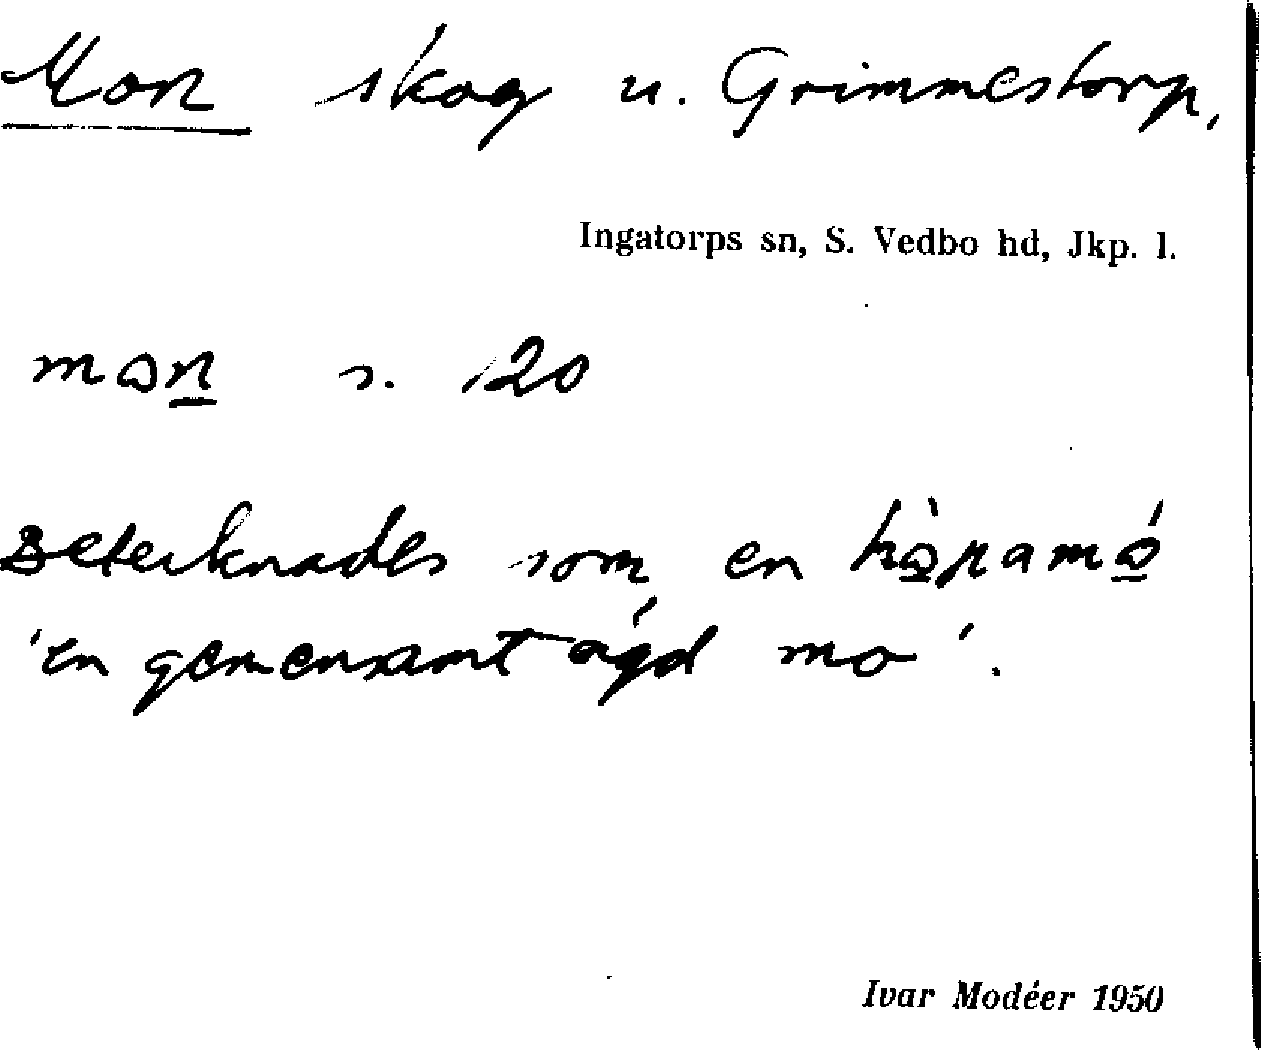 Mon skog u. Grimmestorp,
Ingatorps sn, S. Vedbo hd, Jkp. l.
mon s. 120
Betecknades som en
'en gemensamt ägd mo'.
Ivar Modéer 1950